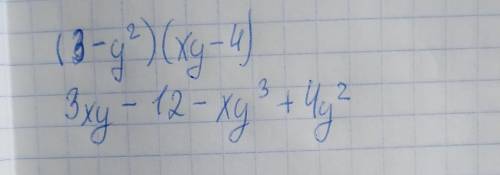 (3-y²)(xy-4)
3xy-12-xy³+4y²